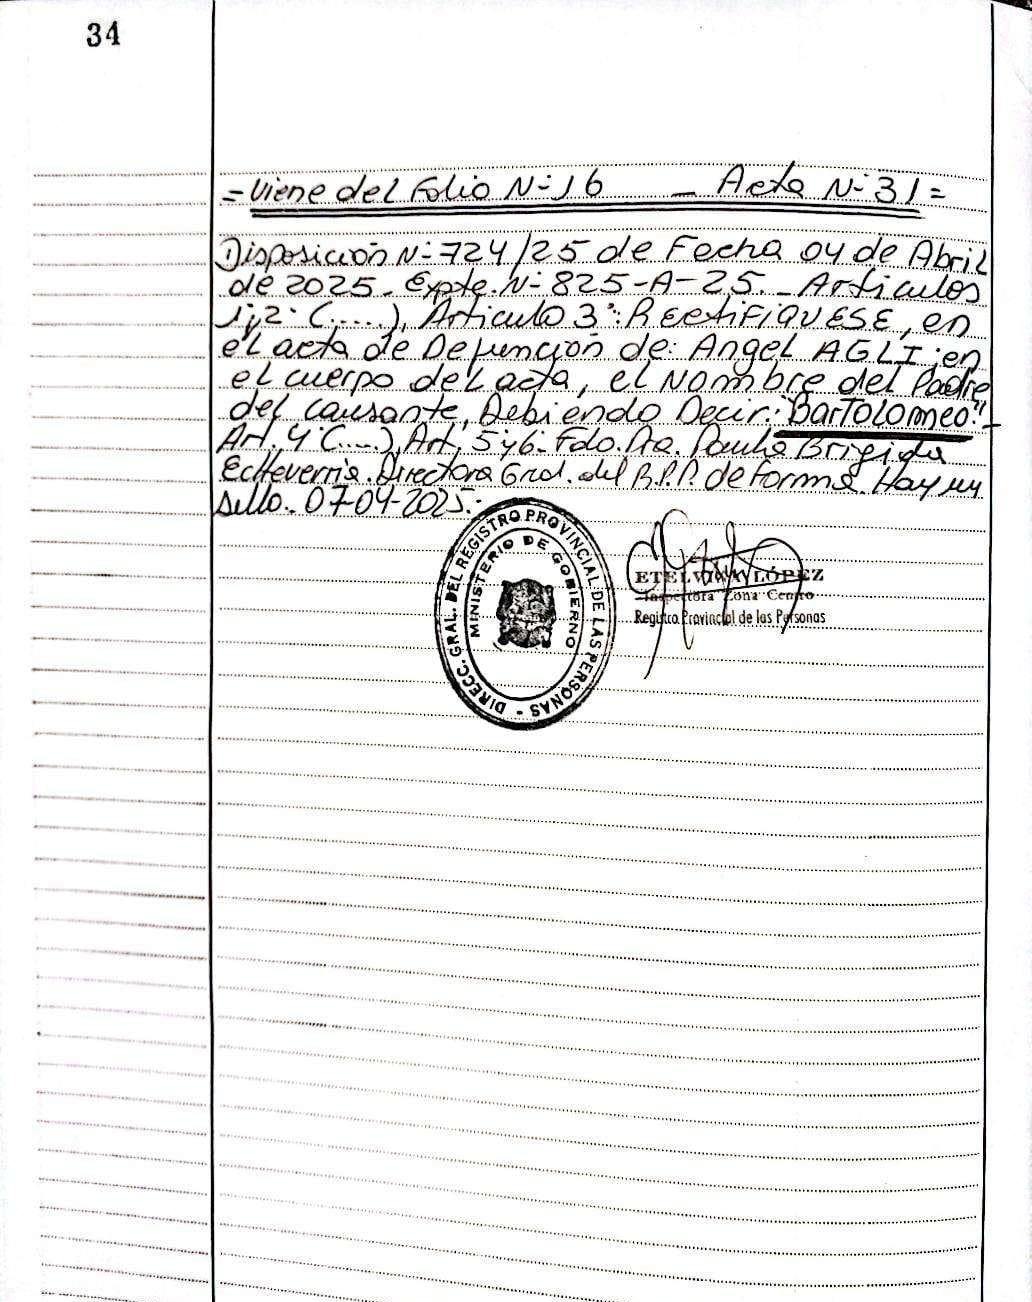 34
= Viene del Folio N-16 - Acta N-31 =
Disposición N-724/25 de Fecha 04 de Abril
de 2025. Expte. N-825-A-25. Artículos
1; 2° (.....), Artículo 3°: RECTIFIQUESE, en
el acta de Defunción de: Angel AGLI; en
el cuerpo del acta, el Nombre del Padre
del causante, Debiendo Decir: "BARTOLOMEO".-
Art. 4° (.....), Art. 5 y 6. Fdo. Dra. Paula Brigida
Echeverria. Directora Gral. del R.P.P. de Forma. Hay un
sello. 07-04-2025.
DIRECC. GRAL. DEL REGISTRO PROVINCIAL DE LAS PERSONAS -
MINISTERIO DE GOBIERNO
ETELVINA LÓPEZ
Inspectora Zona Centro
Registro Provincial de las Personas